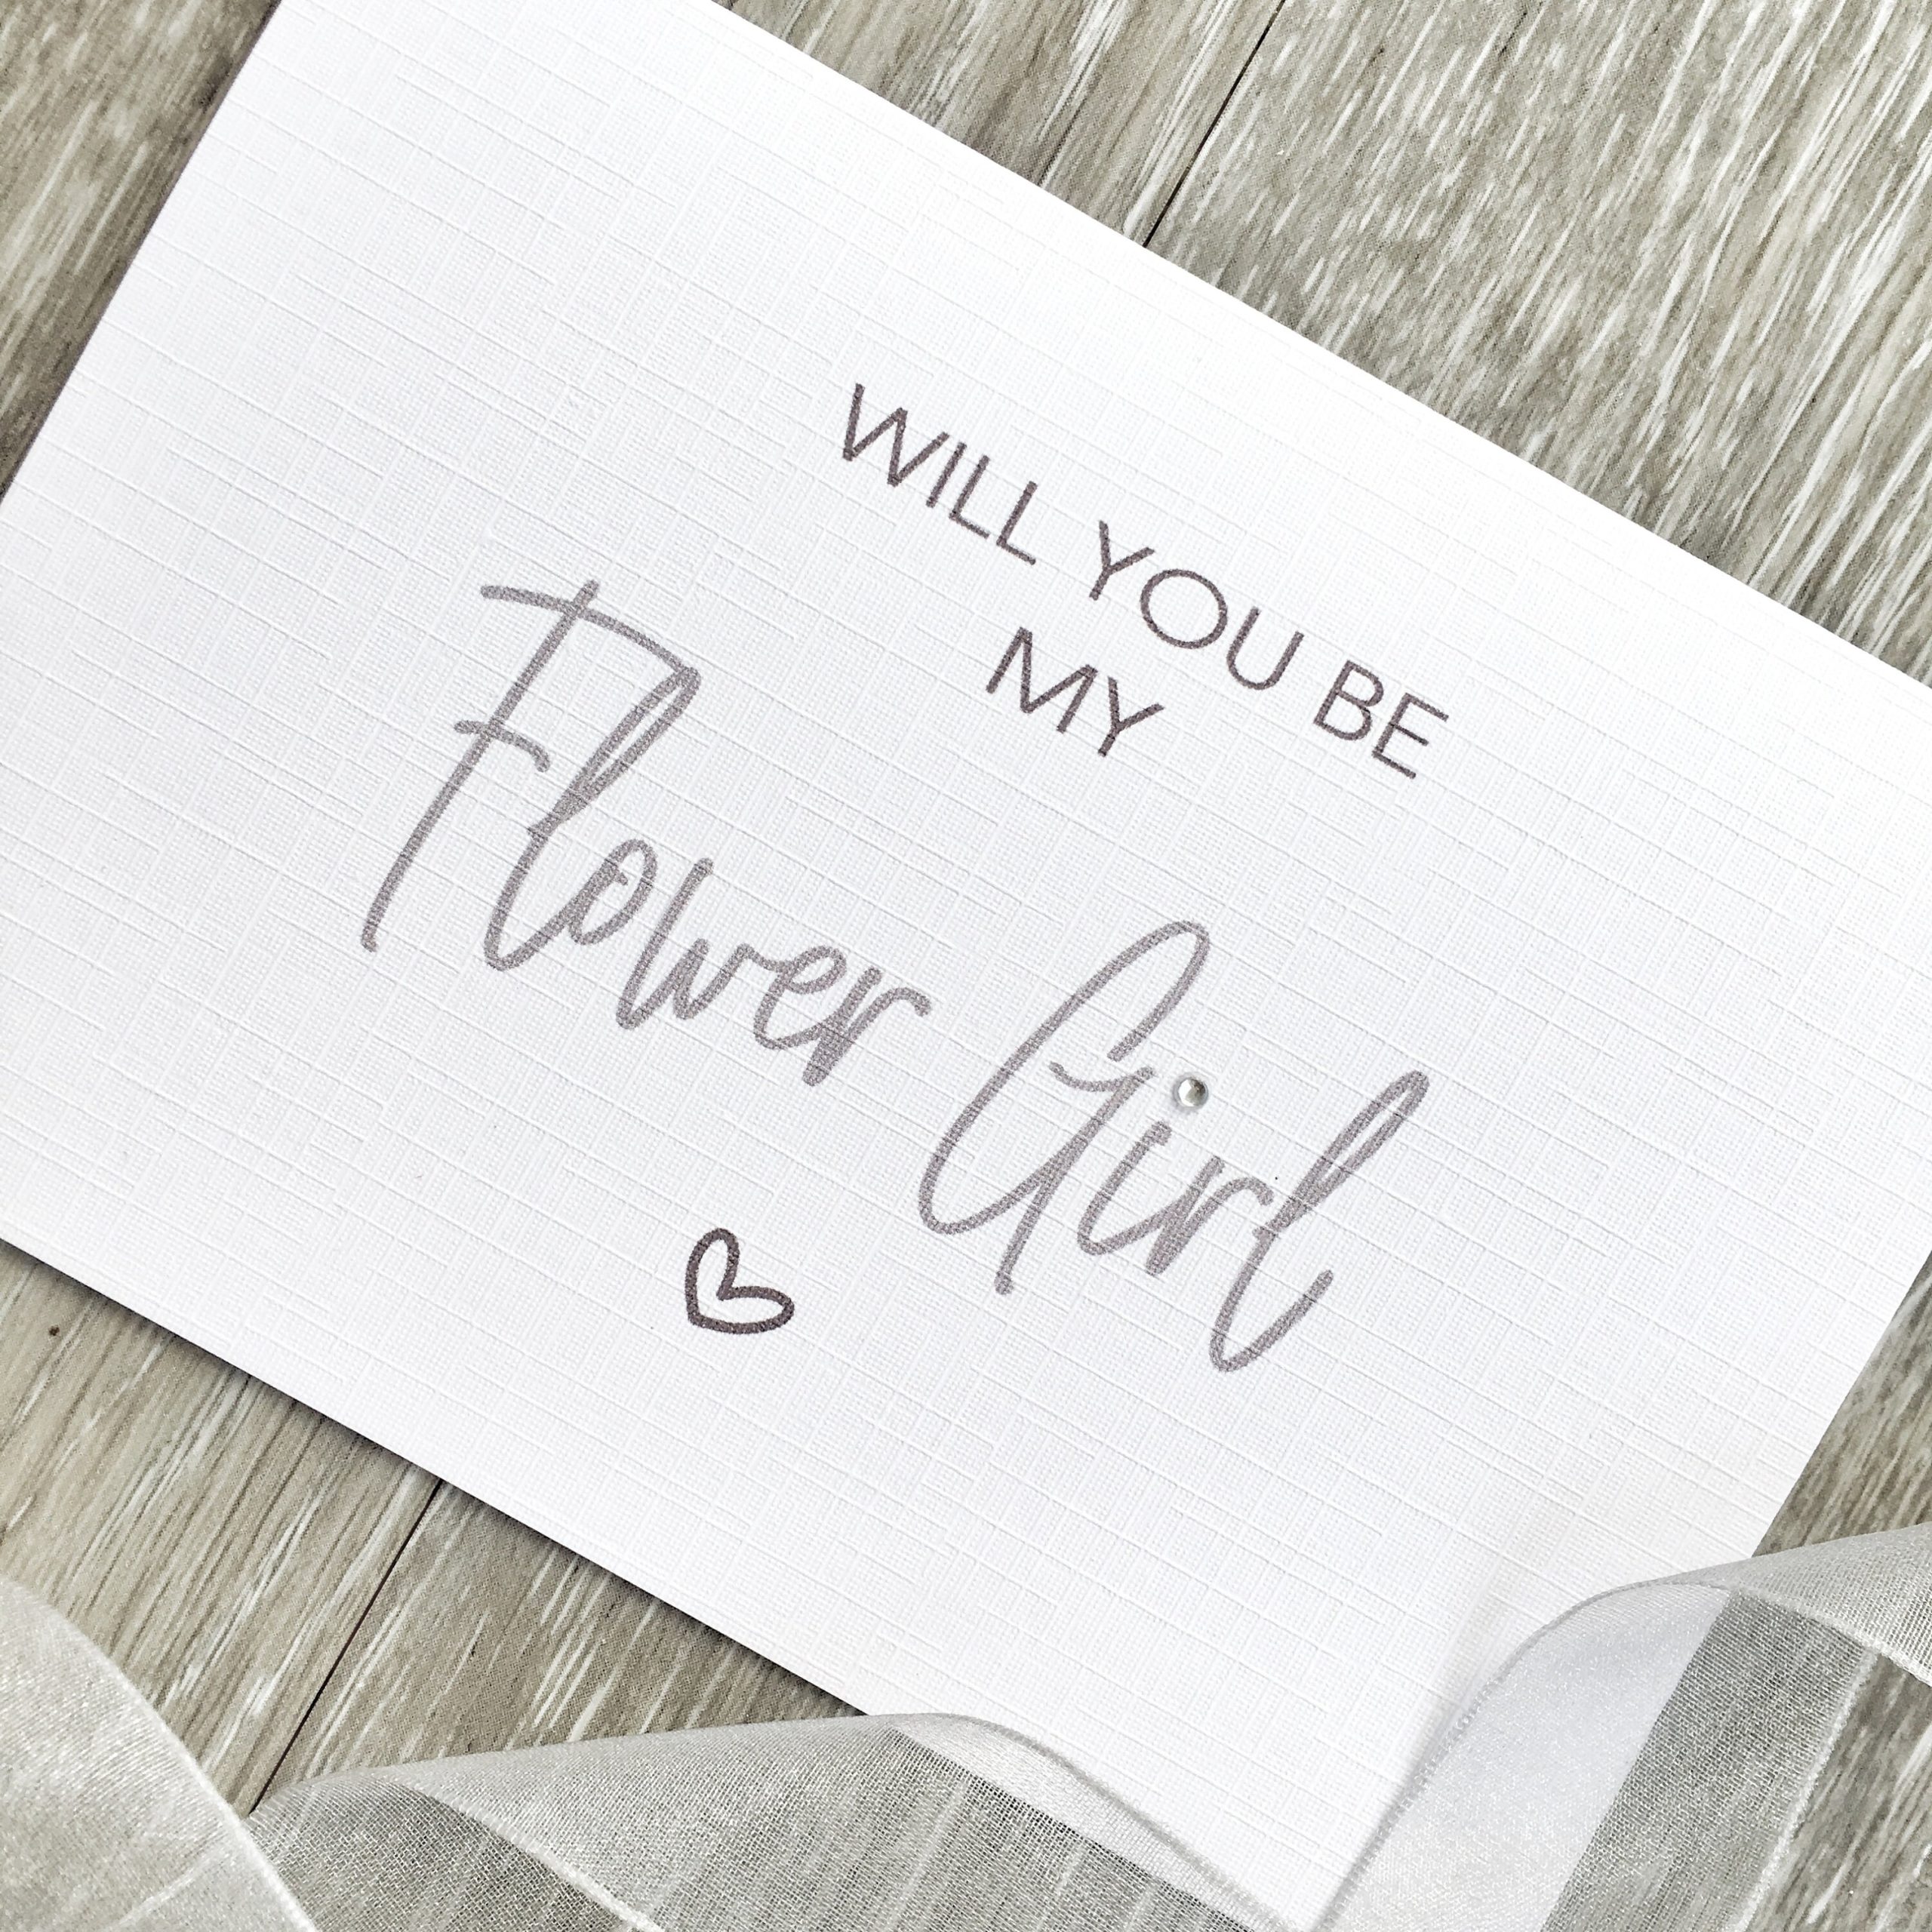 WILL YOU BE
MY
Flower Girl